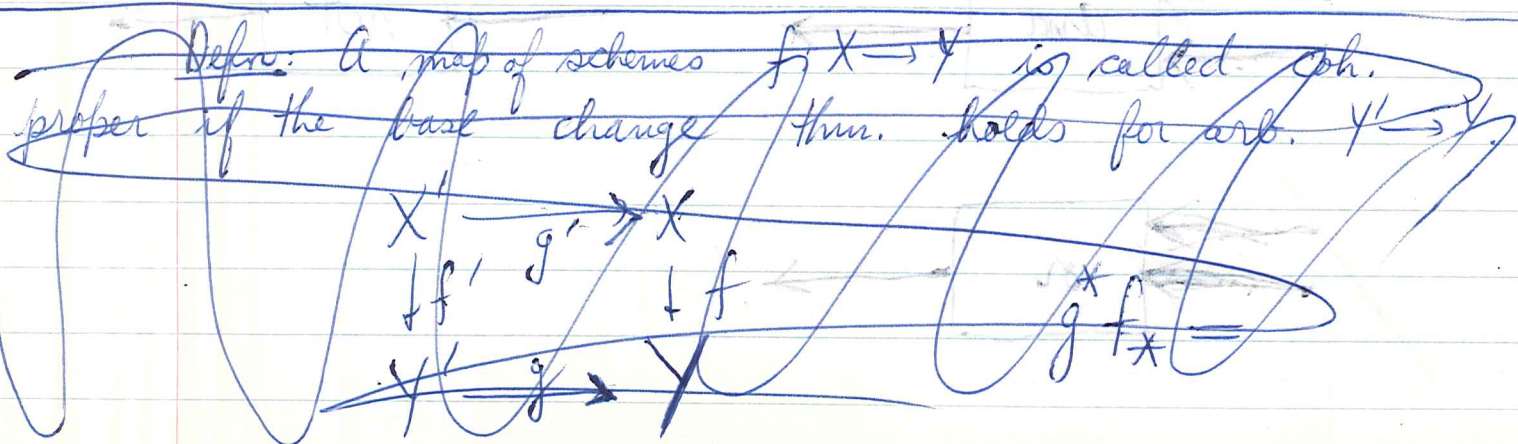 Defn: A map of schemes f: X → Y is called coh.
proper if the base change thm. holds for arb. Y' → Y.
X' → X
g'
↓ f' ↓ f g* f_* =
Y' → Y
g